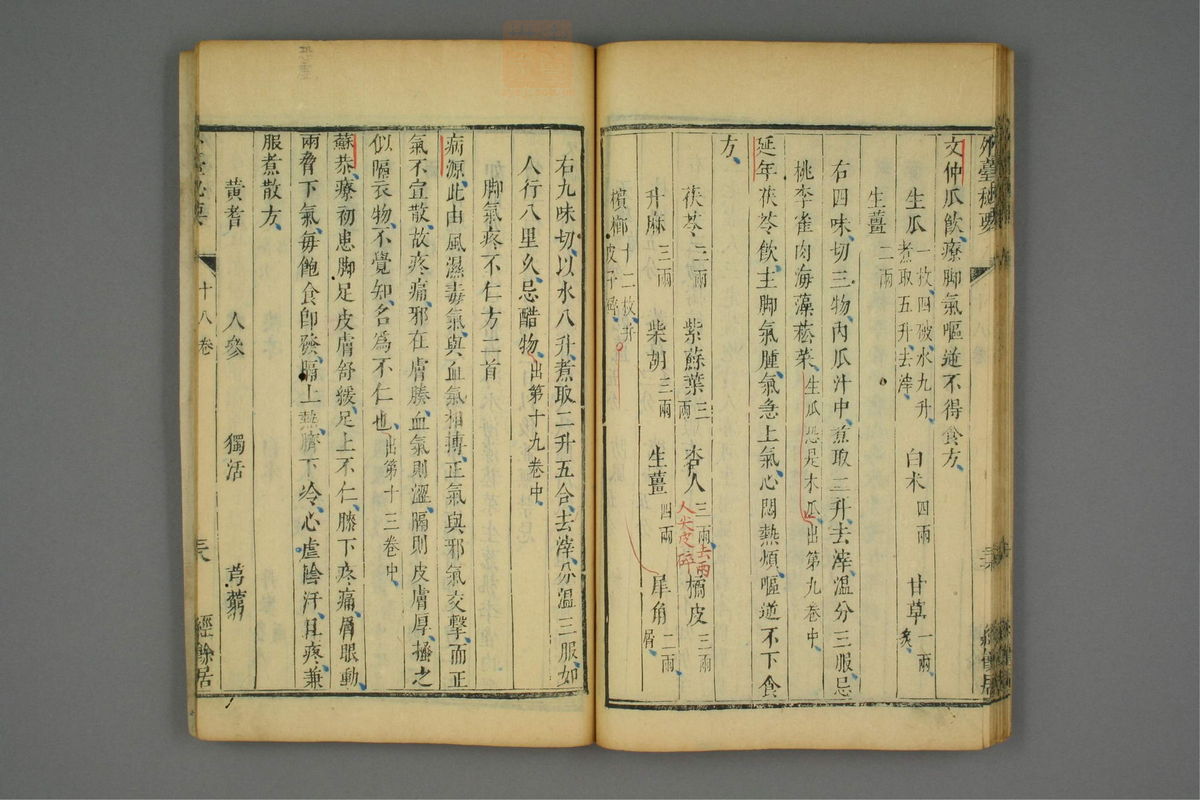 外臺秘要
文仲瓜飲療脚氣嘔逆不得食方
生瓜一枚四破水九升煮取五升去滓 白朮四兩 甘草一兩炙
生薑二兩
右四味切三物內瓜汁中煮取三升去滓溫分三服忌
桃李雀肉海藻菘菜生瓜恐是木瓜出第九卷中
延年茯苓飲主脚氣腫氣急上氣心悶熱煩嘔逆不下食
方
茯苓三兩 紫蘇葉三兩 杏人三兩 去兩人尖皮碎 橘皮三兩
升麻三兩 柴胡三兩 生薑四兩 犀角二兩屑
檳榔十二枚并皮子碎
右九味切以水八升煮取二升五合去滓分溫三服如
人行八里久忌醋物出第十九卷中
脚氣疼不仁方二首
病源此由風濕毒氣與血氣相搏正氣與邪氣交擊而正
氣不宣散故疼痛邪在膚腠血氣則澀隔則皮膚厚搔之
似隔衣物不覺知名爲不仁也出第十三卷中
蘇恭療初患脚足皮膚舒緩足上不仁膝下疼痛屑眼動
兩脅下氣每飽食卽發膈上熱臍下冷心虛陰汗且疼兼
服煮散方
黃耆 人參 獨活 芎藭
十八卷
經餘居